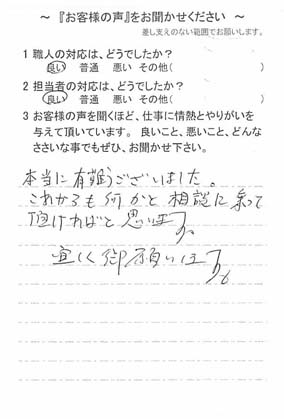 ～ 『お客様の声』をお聞かせください ～
差し支えのない範囲でお願いします。
1 職人の対応は、どうでしたか？
良い 普通 悪い その他( )
2 担当者の対応は、どうでしたか？
良い 普通 悪い その他( )
3 お客様の声を聞くほど、仕事に情熱とやりがいを
与えて頂いています。 良いこと、悪いこと、どんな
ささいな事でもぜひ、お聞かせ下さい。
本当に有難うございました。
これからも何かと相談に乗って
頂ければと思います。
宜しく御願いします。